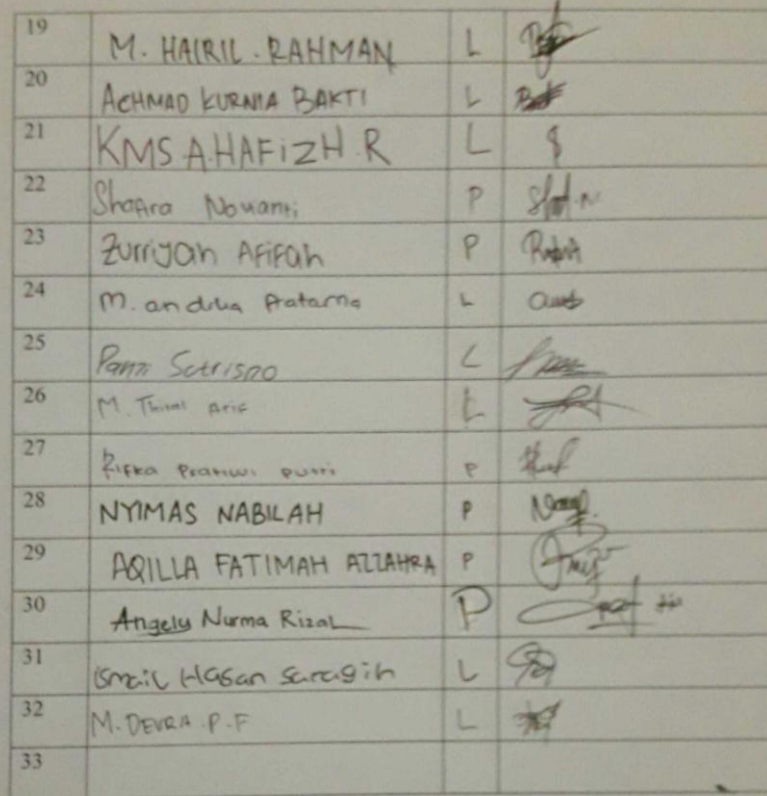 19 M. HAIRIL. RAHMAN L
20 ACHMAD KURNIA BAKTI L
21 KMS A.HAFIZH.R L
22 Shafira Novianti P
23 Zurriyah AFIFah P
24 M. andika Pratama L
25 Panji Sutrisno L
26 M. Arif L
27 Rifka Pratiwi putri P
28 NYIMAS NABILAH P
29 AQILLA FATIMAH AZZAHRA P
30 Angely Nurma Rizal P
31 Ismail Hasan Saragih L
32 M. DEVRA.P.F L
33